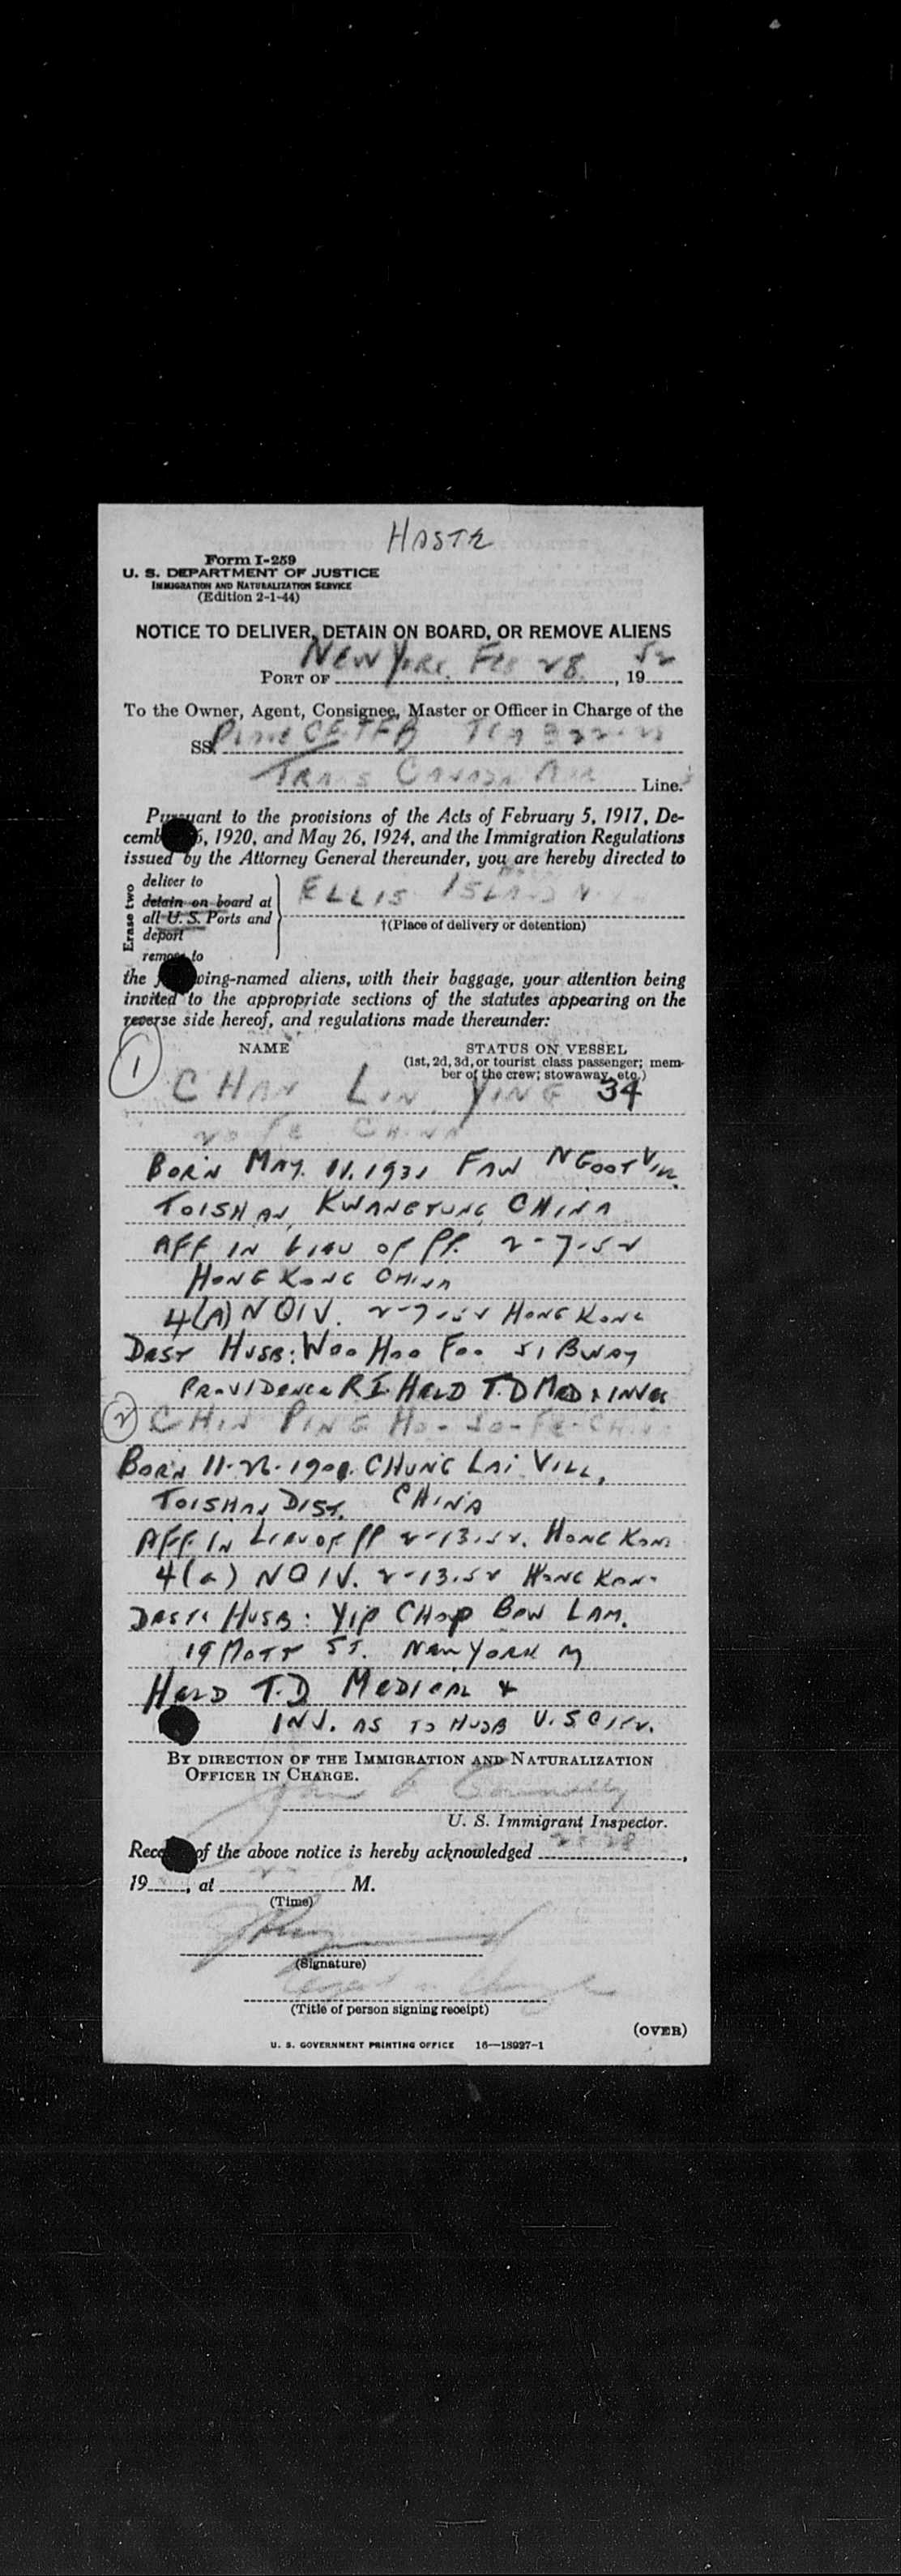 HASTE
Form I-259
U. S. DEPARTMENT OF JUSTICE
IMMIGRATION AND NATURALIZATION SERVICE
(Edition 2-1-44)
NOTICE TO DELIVER, DETAIN ON BOARD, OR REMOVE ALIENS
PORT OF New York. Feb 28, 1952
To the Owner, Agent, Consignee, Master or Officer in Charge of the
SS. Plane CF TFB TCA
Trans Canada Air Line.
Pursuant to the provisions of the Acts of February 5, 1917, De-
cemb 6, 1920, and May 26, 1924, and the Immigration Regulations
issued by the Attorney General thereunder, you are hereby directed to
Erase two
deliver to
detain on board at
all U. S. Ports and
deport
remove to
ELLIS ISLAND N.Y.
†(Place of delivery or detention)
the wing-named aliens, with their baggage, your attention being
invited to the appropriate sections of the statutes appearing on the
reverse side hereof, and regulations made thereunder:
NAME
STATUS ON VESSEL
(1st, 2d, 3d, or tourist class passenger; mem-
ber of the crew; stowaway, etc.)
1
CHAN LIN YING 34
20 FE CHINA
BORN MAY. 11. 1931 FAW NGOOT VILL.
TOISHAN, KWANGTUNG CHINA
AFF IN LIEU OF PP. 2-7-52
HONG KONG CHINA
4(A) NQIV. 2-7-52 HONG KONG
DEST HUSB: WOO HOO FOO 51 BWAY
PROVIDENCE RI HELD T.D MED & INV
2 CHIN PING HO - 50 - FE - CHIN
BORN 11-26-1901 CHUNG LAI VILL,
TOISHAN DIST. CHINA
AFF. IN LIEU OF PP 2-13-52. HONG KON
4(a) NQIV. 2-13-52 HONG KONG
DEST: HUSB: YIP CHOP BOW LAM.
19 MOTT ST. NEW YORK NY
HELD T.D MEDICAL &
INV. AS TO HUSB U.S CITZ.
BY DIRECTION OF THE IMMIGRATION AND NATURALIZATION
OFFICER IN CHARGE.
U. S. Immigrant Inspector.
Rece of the above notice is hereby acknowledged
19, at M.
(Time)
(Signature)
(Title of person signing receipt)
(OVER)
U. S. GOVERNMENT PRINTING OFFICE 16—18927-1